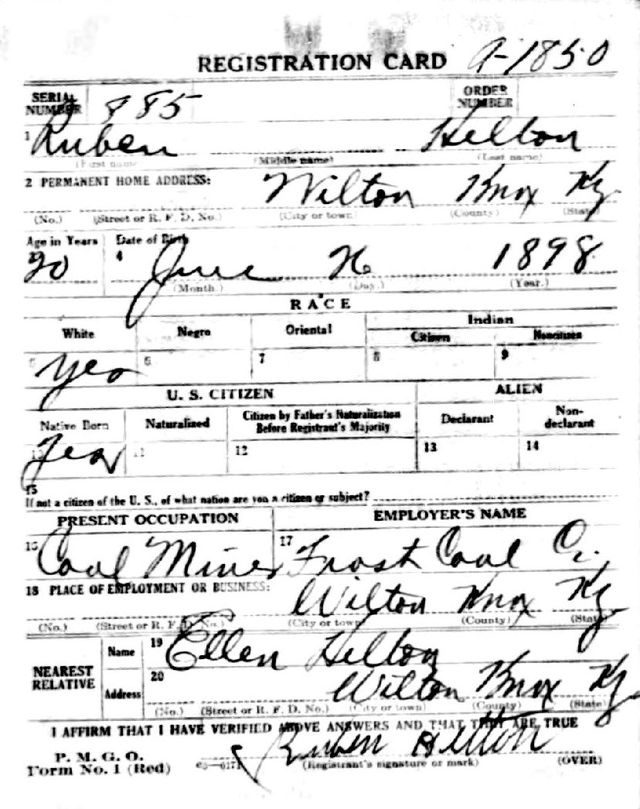 REGISTRATION CARD A-1850
SERIAL NUMBER 885 ORDER NUMBER
1 Ruben Helton
(First name) (Middle name) (Last name)
2 PERMANENT HOME ADDRESS: Wilton Knox Ky.
(No.) (Street or R. F. D. No.) (City or town) (County) (State)
Age in Years Date of Birth
20 4 June 1898
(Month.) (Day.) (Year.)
RACE
White Negro Oriental Indian
Citizen Noncitizen
5 Yes 6 7 8 9
U. S. CITIZEN ALIEN
Native Born Naturalized Citizen by Father's Naturalization Before Registrant's Majority Declarant Non-declarant
10 Yes 11 12 13 14
15
If not a citizen of the U. S., of what nation are you a citizen or subject?
PRESENT OCCUPATION EMPLOYER'S NAME
16 Coal Miner 17 Frost Coal Co.
18 PLACE OF EMPLOYMENT OR BUSINESS: Wilton Knox Ky
(No.) (Street or R. F. D. No.) (City or town) (County) (State)
NEAREST RELATIVE Name 19 Ellen Helton
Address 20 Wilton Knox Ky
(No.) (Street or R. F. D. No.) (City or town) (County) (State)
I AFFIRM THAT I HAVE VERIFIED ABOVE ANSWERS AND THAT THEY ARE TRUE
P. M. G. O.
Form No. 1 (Red) Ruben Helton
(Registrant's signature or mark) (OVER)